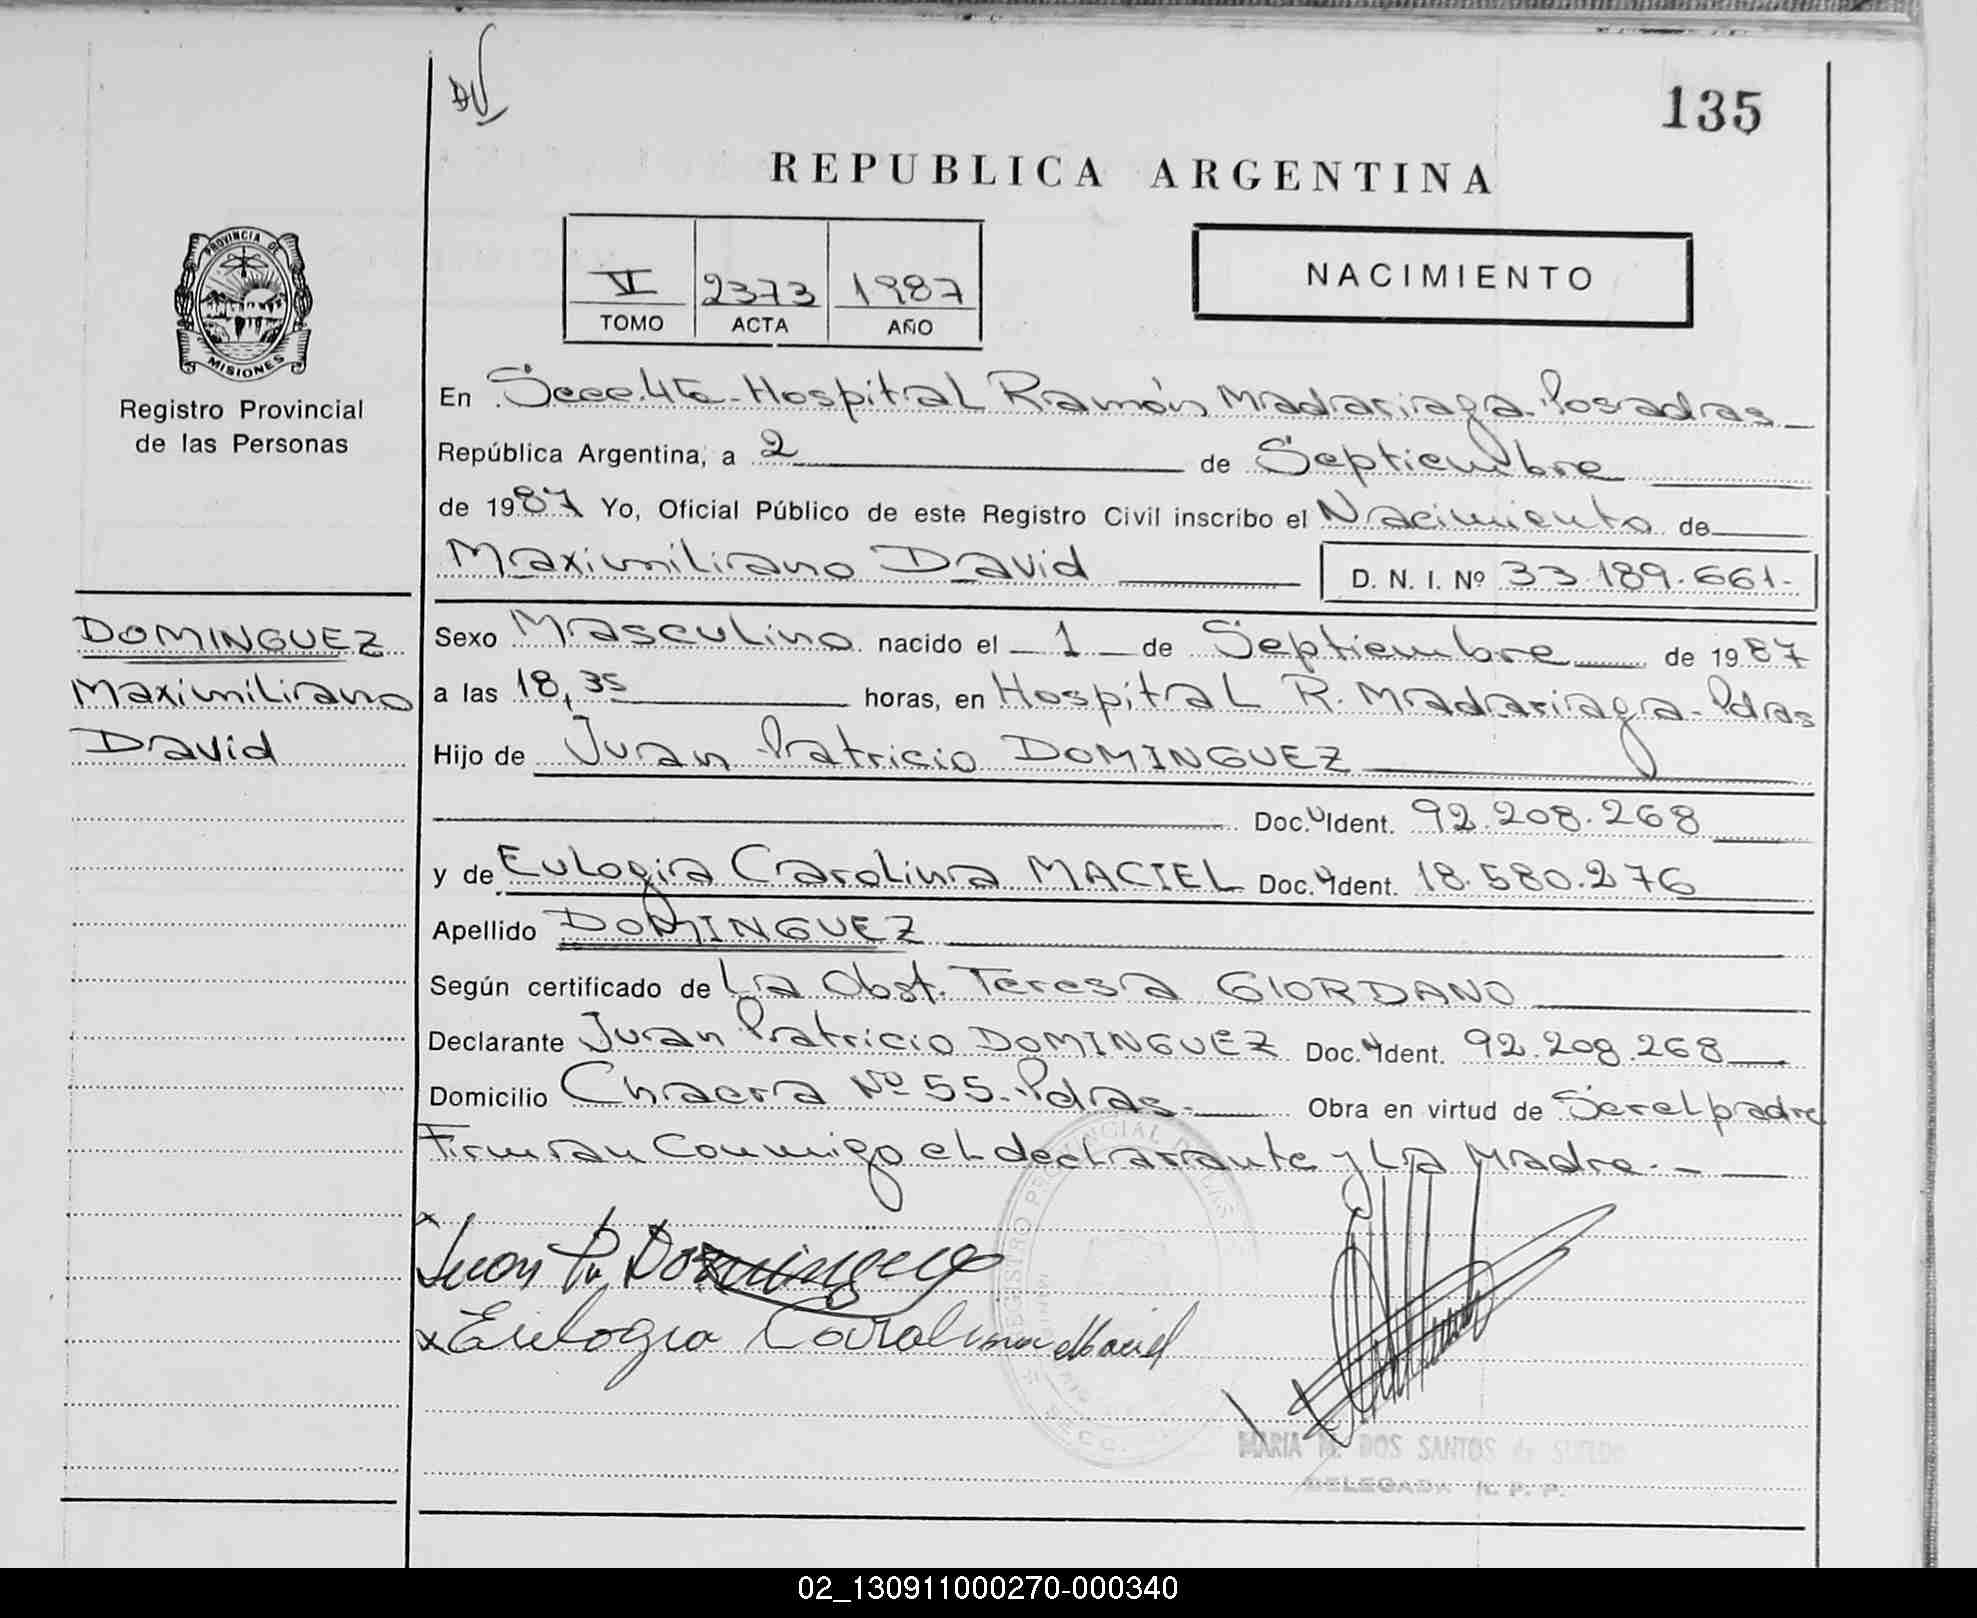 135
REPUBLICA ARGENTINA
VI 2373 1987
TOMO ACTA AÑO
NACIMIENTO
PROVINCIA DE
MISIONES
Registro Provincial
de las Personas
En Secc. 4ta - Hospital Ramón Madariaga - Posadas
República Argentina, a 2 de Septiembre
de 1987 Yo, Oficial Público de este Registro Civil inscribo el Nacimiento de
Maximiliano David D. N. I. Nº 33.189.661.-
DOMINGUEZ
Maximiliano
David
Sexo Masculino nacido el 1 de Septiembre de 1987
a las 18,35 horas, en Hospital R. Madariaga - Pdas
Hijo de Juan Patricio DOMINGUEZ
Doc. Ident. 92.208.268
y de Eulogia Carolina MACIEL Doc. Ident. 18.580.276
Apellido DOMINGUEZ
Según certificado de La Obst. Teresa GIORDANO
Declarante Juan Patricio DOMINGUEZ Doc. Ident. 92.208.268
Domicilio Chacra Nº 55 - Pdas.- Obra en virtud de Ser el padre
Firman Conmigo el declarante y La Madre.-
x Juan P. Dominguez
x Eulogia Carolina Maciel
REGISTRO PROVINCIAL DE LAS
SECC.
MARIA M. DOS SANTOS de SUELDO
DELEGADA R. P. P.
02_130911000270-000340